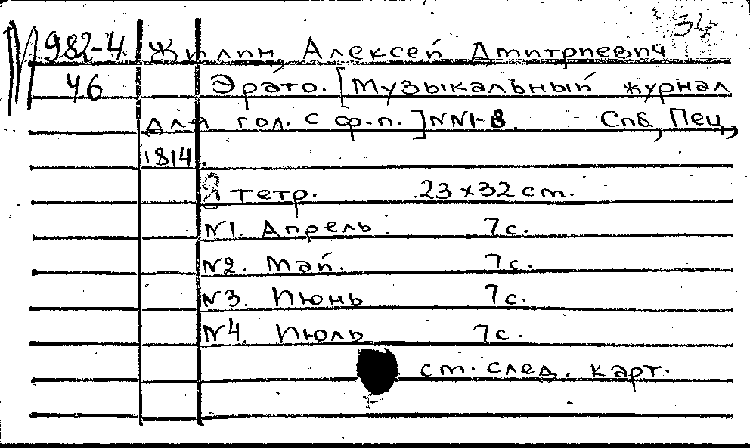 34
М 982-4 Жилин, Алексей Дмитриевич
46 Эрато. [Музыкальный журнал
для гол. с ф-п.] NN1-8. Спб, Пец.,
1814.
8 тетр. 23 x 32 см.
N1. Апрель. 7 с.
N2. Май. 7 с.
N3. Июнь 7 с.
N4. Июль 7 с.
см. след. карт.